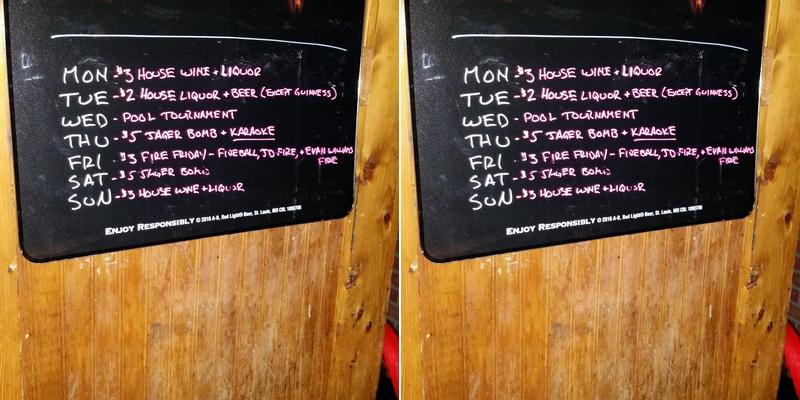 MON -$3 HOUSE WINE + LIQUOR
TUE -$2 HOUSE LIQUOR + BEER (EXCEPT GUINNESS)
WED - POOL TOURNAMENT
THU -$5 JAGER BOMB + KARAOKE
FRI -$3 FIRE FRIDAY - FIREBALL, JD FIRE, + EVAN WILLIAMS
FIRE
SAT -$5 JAGER BOMB
SUN -$3 HOUSE WINE + LIQUOR
ENJOY RESPONSIBLY © 2016 A-B, Bud Light® Beer, St. Louis, MO
MON -$3 HOUSE WINE + LIQUOR
TUE -$2 HOUSE LIQUOR + BEER (EXCEPT GUINNESS)
WED - POOL TOURNAMENT
THU -$5 JAGER BOMB + KARAOKE
FRI -$3 FIRE FRIDAY - FIREBALL, JD FIRE, + EVAN WILLIAMS
FIRE
SAT -$5 JAGER BOMB
SUN -$3 HOUSE WINE + LIQUOR
ENJOY RESPONSIBLY © 2016 A-B, Bud Light® Beer, St. Louis, MO